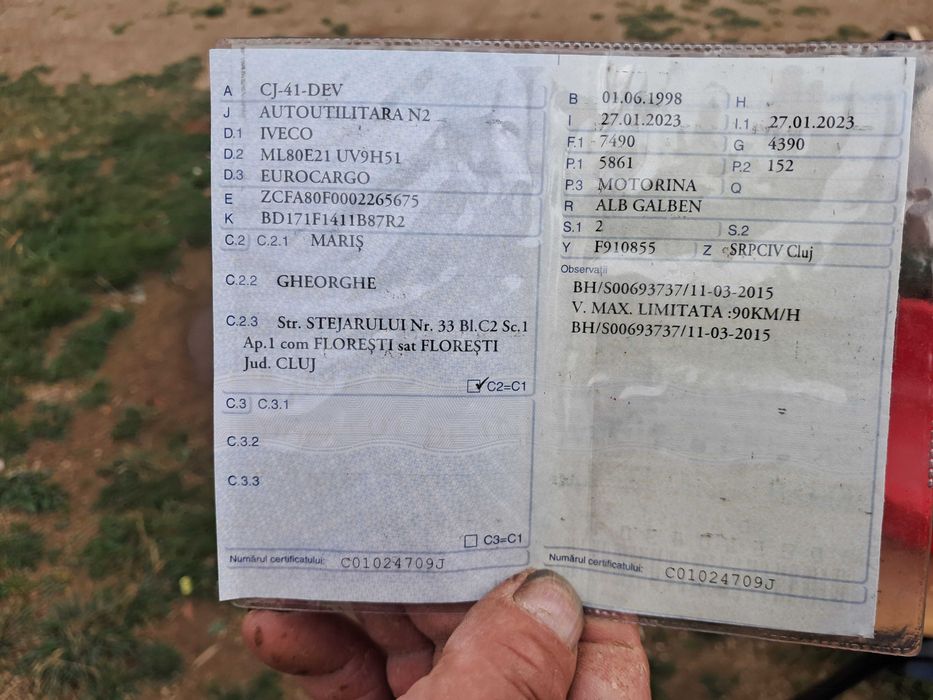 A CJ-41-DEV
J AUTOUTILITARA N2
D.1 IVECO
D.2 ML80E21 UV9H51
D.3 EUROCARGO
E ZCFA80F0002265675
K BD171F1411B87R2
C.2 C.2.1 MARIȘ
C.2.2 GHEORGHE
C.2.3 Str. STEJARULUI Nr. 33 Bl.C2 Sc.1
Ap.1 com FLOREȘTI sat FLOREȘTI
Jud. CLUJ
C2=C1
C.3 C.3.1
C.3.2
C.3.3
C3=C1
Numărul certificatului: C01024709J
B 01.06.1998 H
I 27.01.2023 I.1 27.01.2023
F.1 7490 G 4390
P.1 5861 P.2 152
P.3 MOTORINA Q
R ALB GALBEN
S.1 2 S.2
Y F910855 Z SRPCIV Cluj
Observații
BH/S00693737/11-03-2015
V. MAX. LIMITATA :90KM/H
BH/S00693737/11-03-2015
=
Numărul certificatului: C01024709J